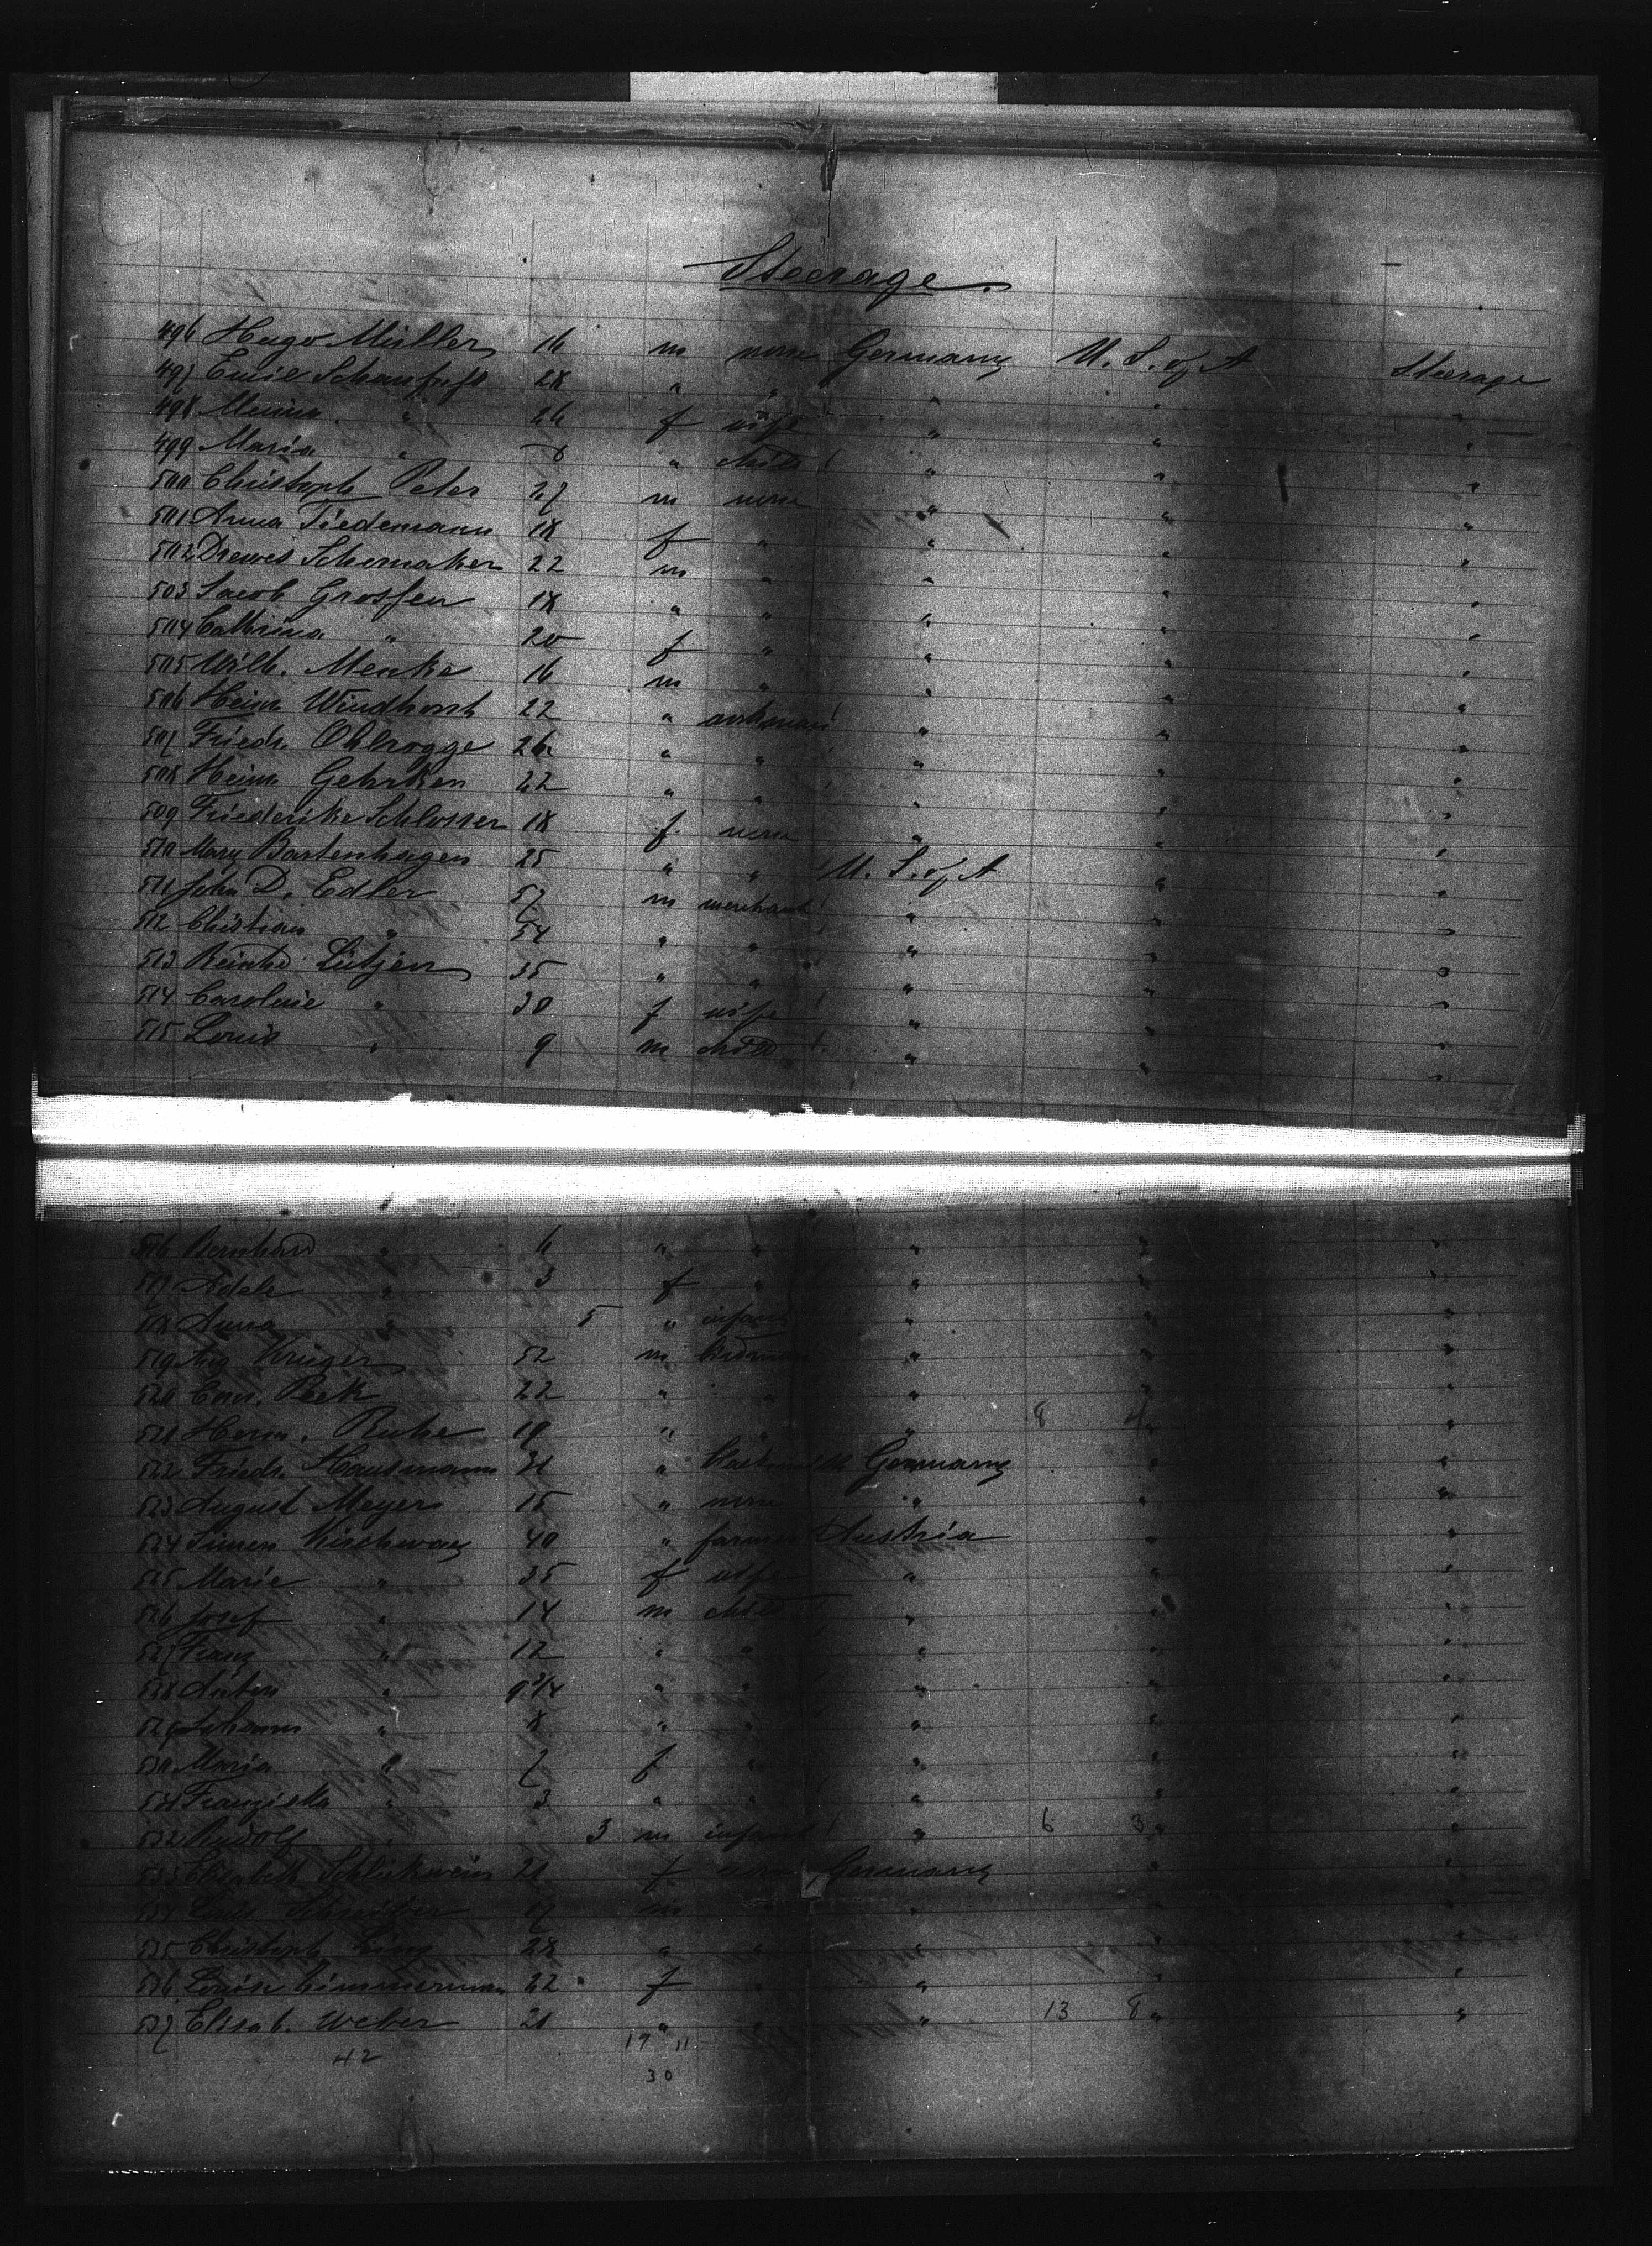 Steerage.
496 Hugo Müller 16 m none Germany U. S. of A Steerage
497 Emil 28 " " " " "
498 Meina " 26 f wife " " "
499 Maria " " child " " "
500 Christoph Peter 27 m none " " "
501 Anna Tiedemann 18 f " " " "
502 Drewes Schumaker 22 m " " " "
503 Jacob Grossen 18 " " " " "
504 Cathrina " 20 f " " " "
505 Wilh. Menke 16 m " " " "
506 Heinr. Windhorst 22 " workman " " "
507 Friedr. Ohlrogge 26 " " " " "
508 Heinr. Gehrken 22 " " " " "
509 Friederike Schlosser 18 f. none " " "
510 Mary Bartenhagen 25 " " U. S. of A " "
511 John D. Edler 57 m merchant " " "
512 Christian " 54 " " " " "
513 Reinhd Lütjen 35 " " " " "
514 Caroline " 30 f wife " " "
515 Louis " 9 m child " " "
516 Bernhard " 6 " " " " "
517 Adele " 3 f " " " "
518 Anna " 5 " infant " " "
519 Aug Krüger 52 m " " "
520 Conr. Peek 22 " " " " "
521 Herm. 19 " " " 8 4 " "
522 Friedr. Hausmann 31 " Germany " "
523 August Meyer 15 " none " " "
524 Simon 40 " farmer Austria " "
525 Marie " 35 f wife " " "
526 Josef " 14 m child " " "
527 Franz " 12 " " " " "
528 Anton " 9 3/4 " " " " "
529 Johann " 8 " " " " "
530 Maria " 7 f " " " "
531 Franziska " 3 " " " " "
532 Rudolf " 3 m infant " 6 3 " "
533 Elisabeth 21 f none Germany " "
534 17 m " " " "
535 Christoph 28 " " " " "
536 Louise Zimmermann 22 f " " " "
537 Elisab. Weber 21 " " " 13 8 " "
42 19 11
30